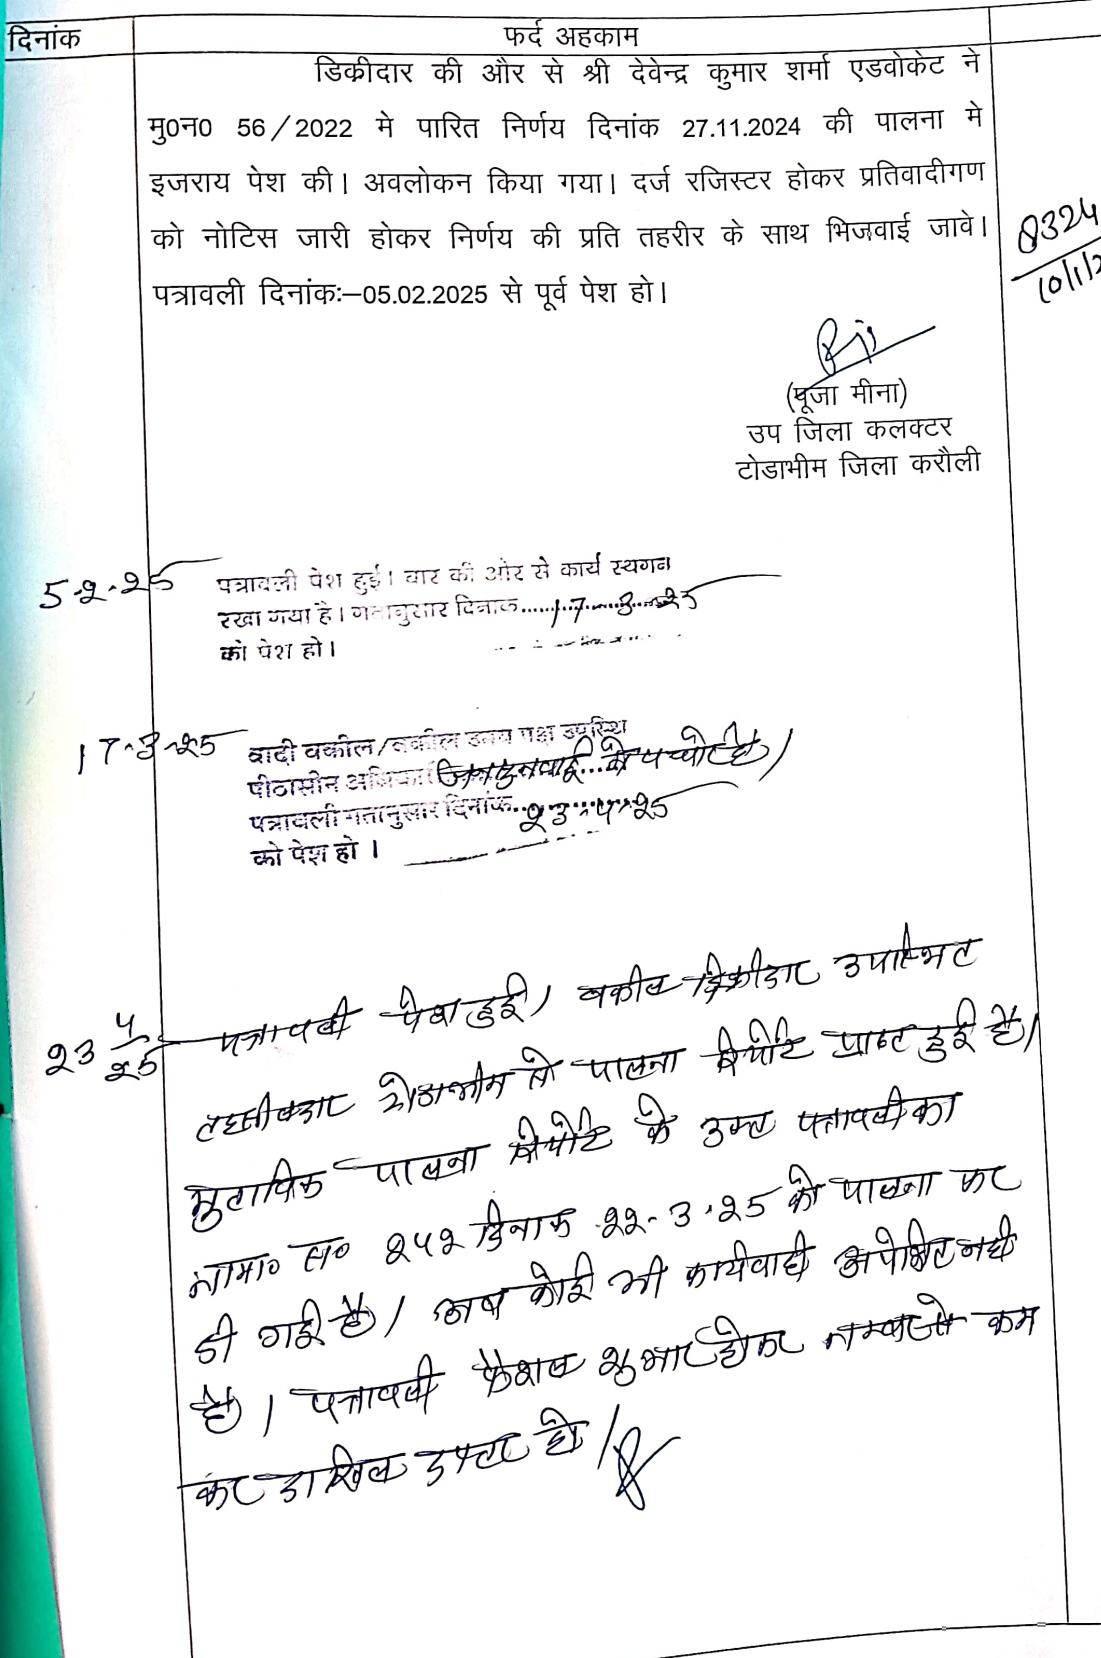 दिनांक
फर्द अहकाम
डिकीदार की और से श्री देवेन्द्र कुमार शर्मा एडवोकेट ने
मु0न0 56/2022 मे पारित निर्णय दिनांक 27.11.2024 की पालना मे
इजराय पेश की। अवलोकन किया गया। दर्ज रजिस्टर होकर प्रतिवादीगण
को नोटिस जारी होकर निर्णय की प्रति तहरीर के साथ भिजवाई जावे।
पत्रावली दिनांकः–05.02.2025 से पूर्व पेश हो।
8324
10/1/2
(पूजा मीना)
उप जिला कलक्टर
टोडाभीम जिला करौली
5-2-25
पत्रावली पेश हुई। वार की ओर से कार्य स्थगन
रखा गया है। गतानुसार दिनांक......17...3...25
को पेश हो।
17-3-25
वादी वकील/वकील उभय पक्ष उपस्थि
पीठासीन अधिका
पत्रावली गतानुसार दिनांक...23-4-25
को पेश हो ।
23 4/25
पत्रावली पेश हुई। वकील डिक्रीदार उपस्थित
तहसीलदार टोडाभीम से पालना रिपोर्ट प्राप्त हुई है।
मुताबिक पालना रिपोर्ट के उक्त पत्रावली का
नामा० स० 242 दिनांक 22-3-25 को पालना कर
दी गई है। अब कोई भी कार्यवाही अपेक्षित नही
है। पत्रावली फैशल शुमार होकर नम्बर से कम
कर दाखिल दफ्तर हो।